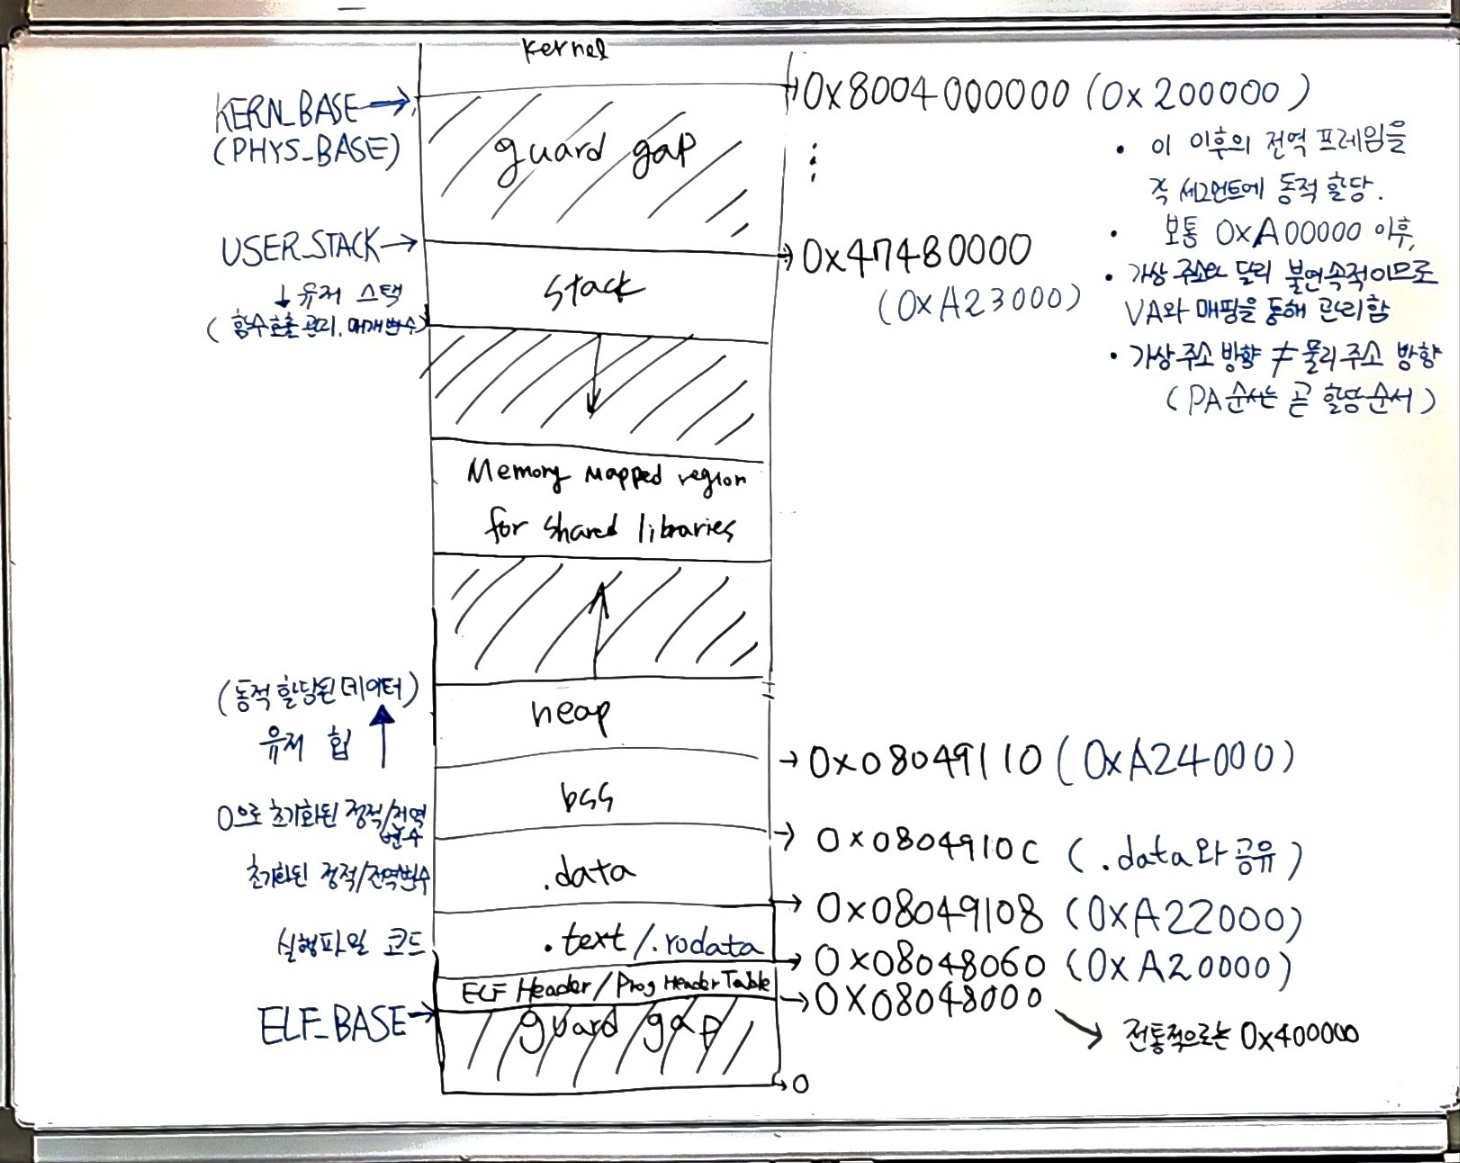 kernel
KERN_BASE → 0x8004000000 (0x200000)
(PHYS_BASE)
guard gap
• 이 이후의 전역 프레임을
각 세그먼트에 동적 할당.
• 보통 0xA00000 이후,
• 가상 주소와 달리 불연속적이므로
VA와 매핑을 통해 관리함
• 가상주소 방향 ≠ 물리주소 방향
(PA순서는 곧 할당순서)
USER_STACK → 0x47480000
(0xA23000)
stack
↓ 유저 스택
(함수호출 관리, 매개변수)
Memory Mapped region
for shared libraries
(동적 할당된 데이터)
유저 힙 ↑
heap
→ 0x08049110 (0xA24000)
0으로 초기화된 정적/전역
변수
bss
→ 0x0804910C (.data와 공유)
초기화된 정적/전역변수
.data
→ 0x08049108 (0xA22000)
실행파일 코드
.text/.rodata
→ 0x08048060 (0xA20000)
ELF Header/Prog Header Table
ELF_BASE → 0x08048000
guard gap
→ 전통적으로는 0x400000
→ 0